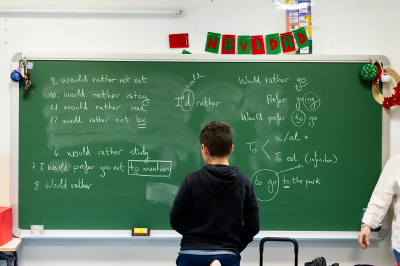 NAVIDAD
9. would rather not eat
10. would rather stay
11 would rather read
12 would rather not be
6 would rather study
7. I would prefer you not to mention
8 would rather
would
I'd rather
Would rather go
Prefer going
Would prefer to go
To < a/al
To eat (infinitivo)
to go to the park